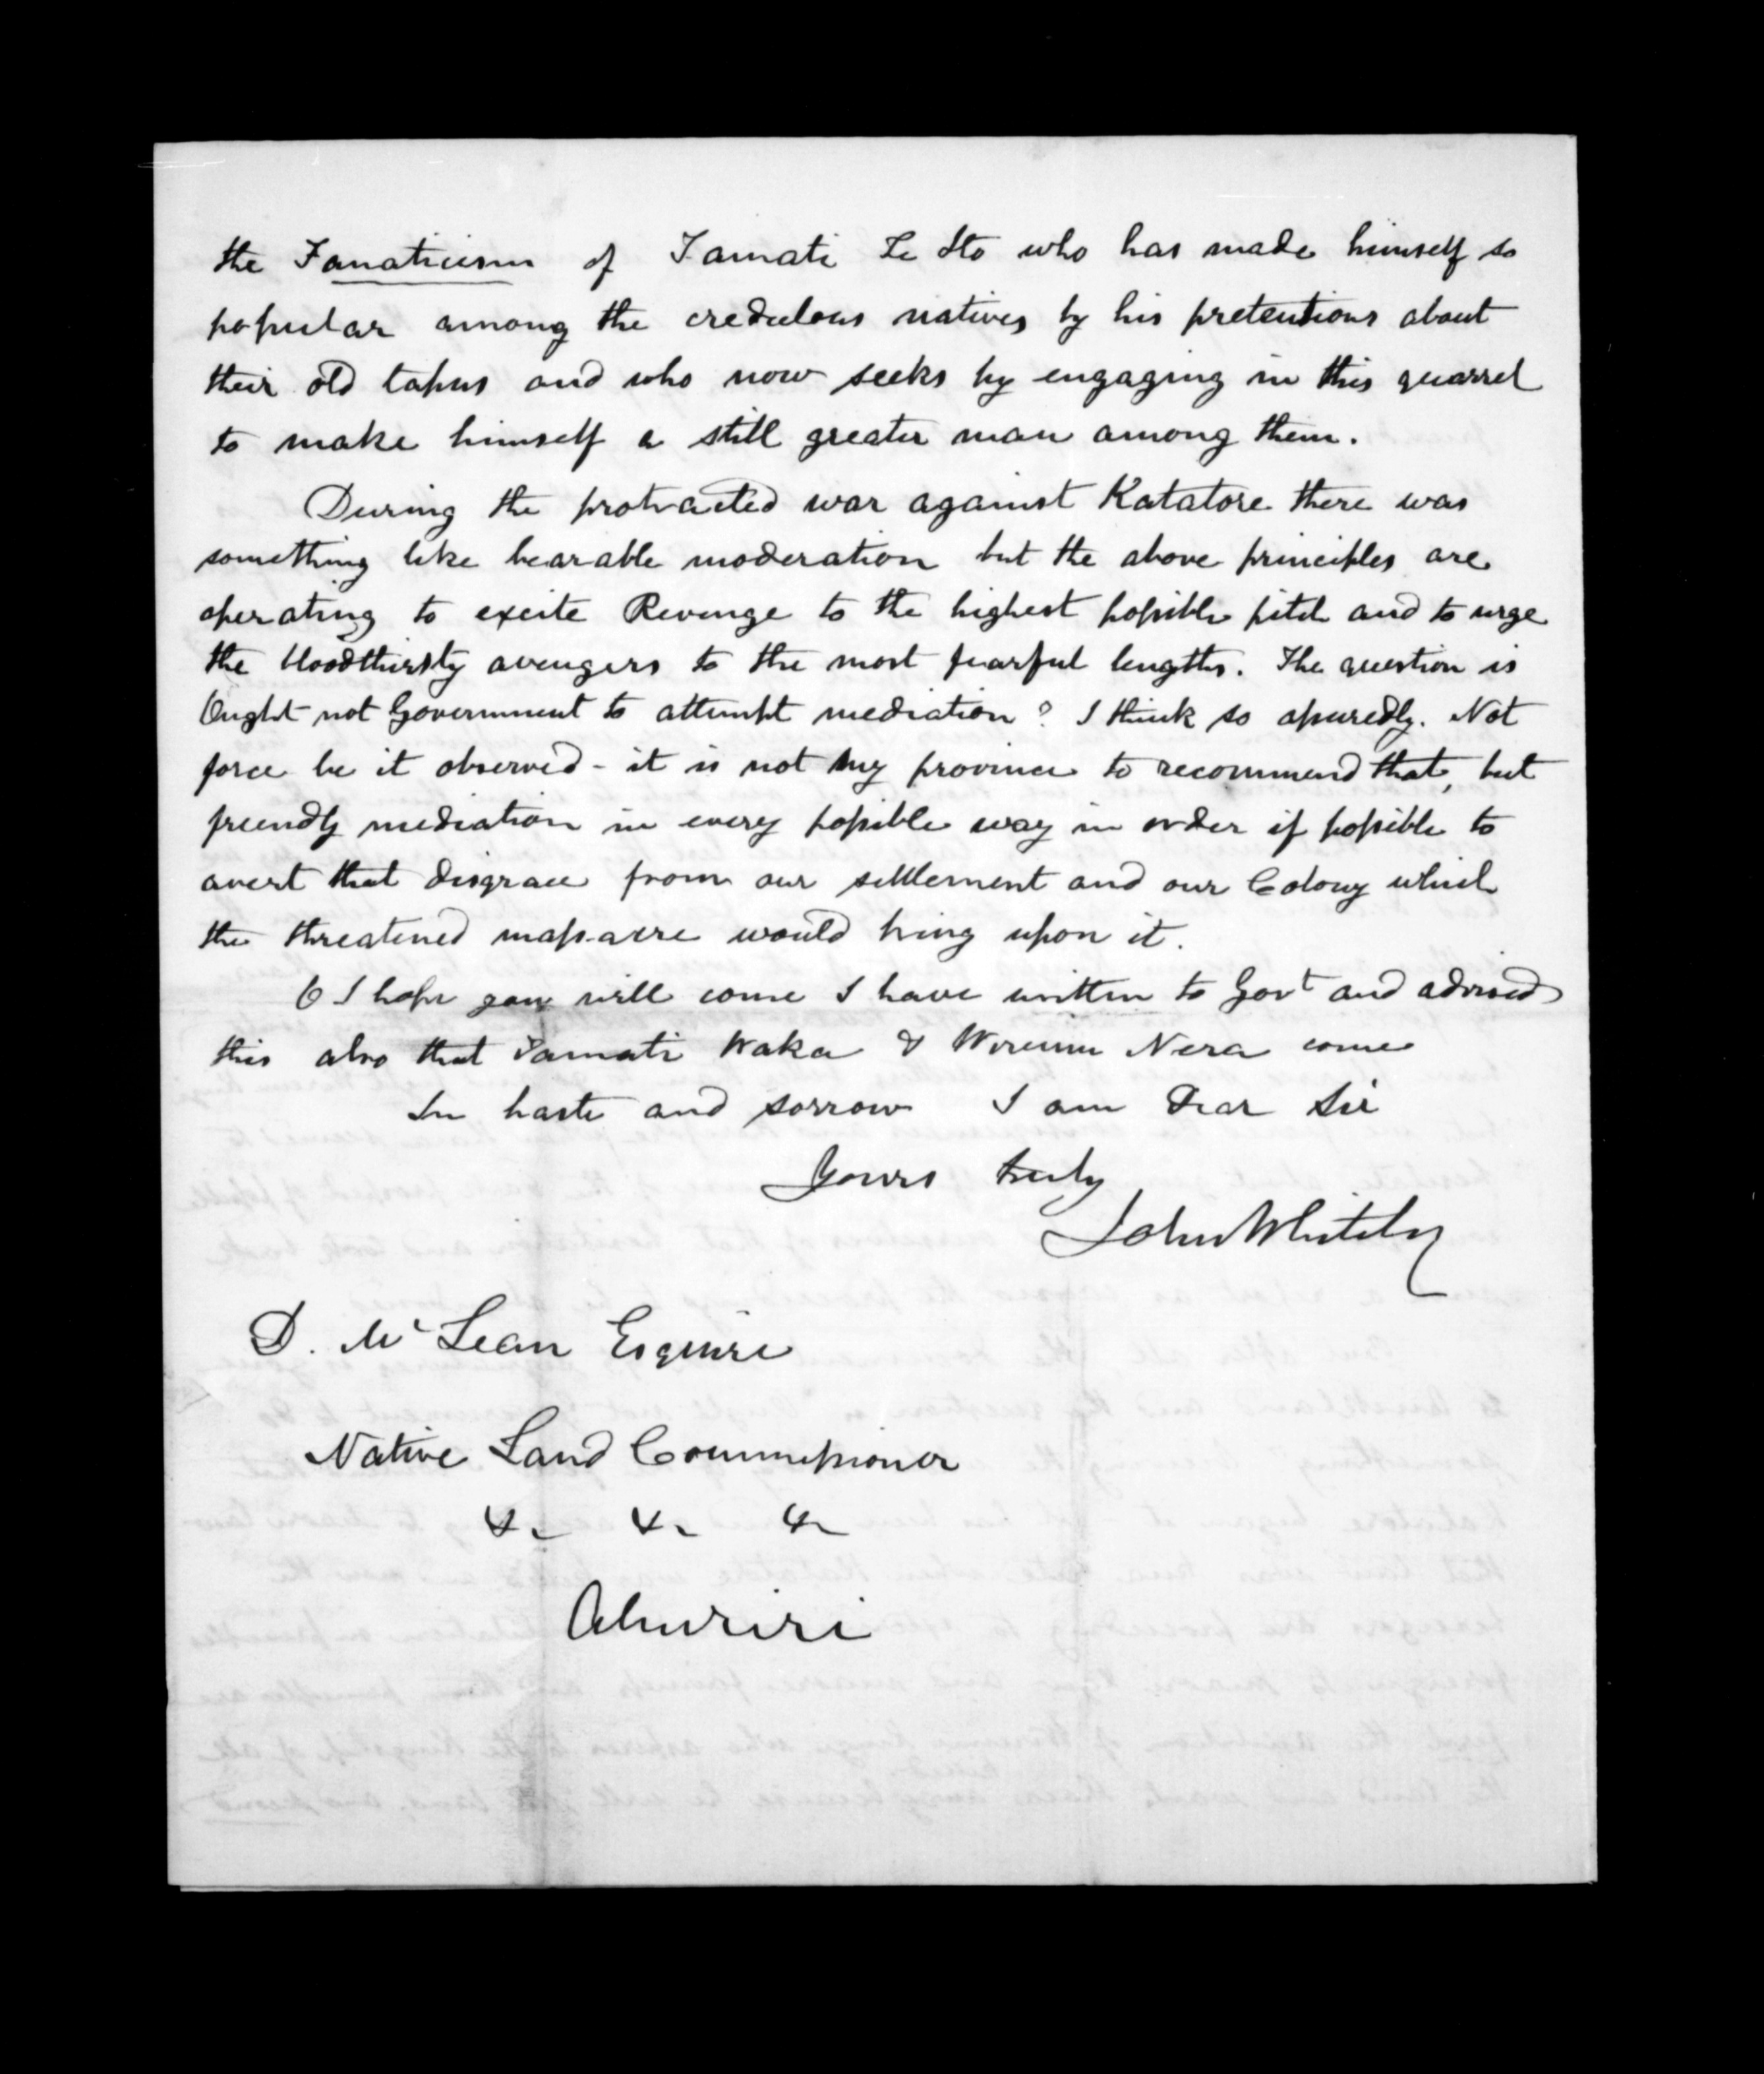 the Fanaticism of Tamati Te Ito who has made himself so
popular among the credulous natives by his pretentions about
their old tapus and who now seeks by engaging in this quarrel
to make himself a still greater man among them.
During the protracted war against Katatore there was
something like bearable moderation but the above principles are
operating to excite Revenge to the highest possible pitch and to urge
the bloodthirsty avengers to the most fearful lengths. The question is
Ought not Government to attempt mediation? I think so assuredly. Not
force be it observed - it is not my province to recommend that, but
friendly mediation in every possible way in order if possible to
avert that disgrace from our settlement and our Colony which
the threatened massacre would bring upon it.
O I hope you will come I have written to Govt and advised
this also that Tamati Waka & Wiremu Nera come
In haste and sorrow I am Dear Sir
Yours truly
John Whiteley
D. Mc Lean Esquire
Native Land Commissioner
&c &c &c
Ahuriri